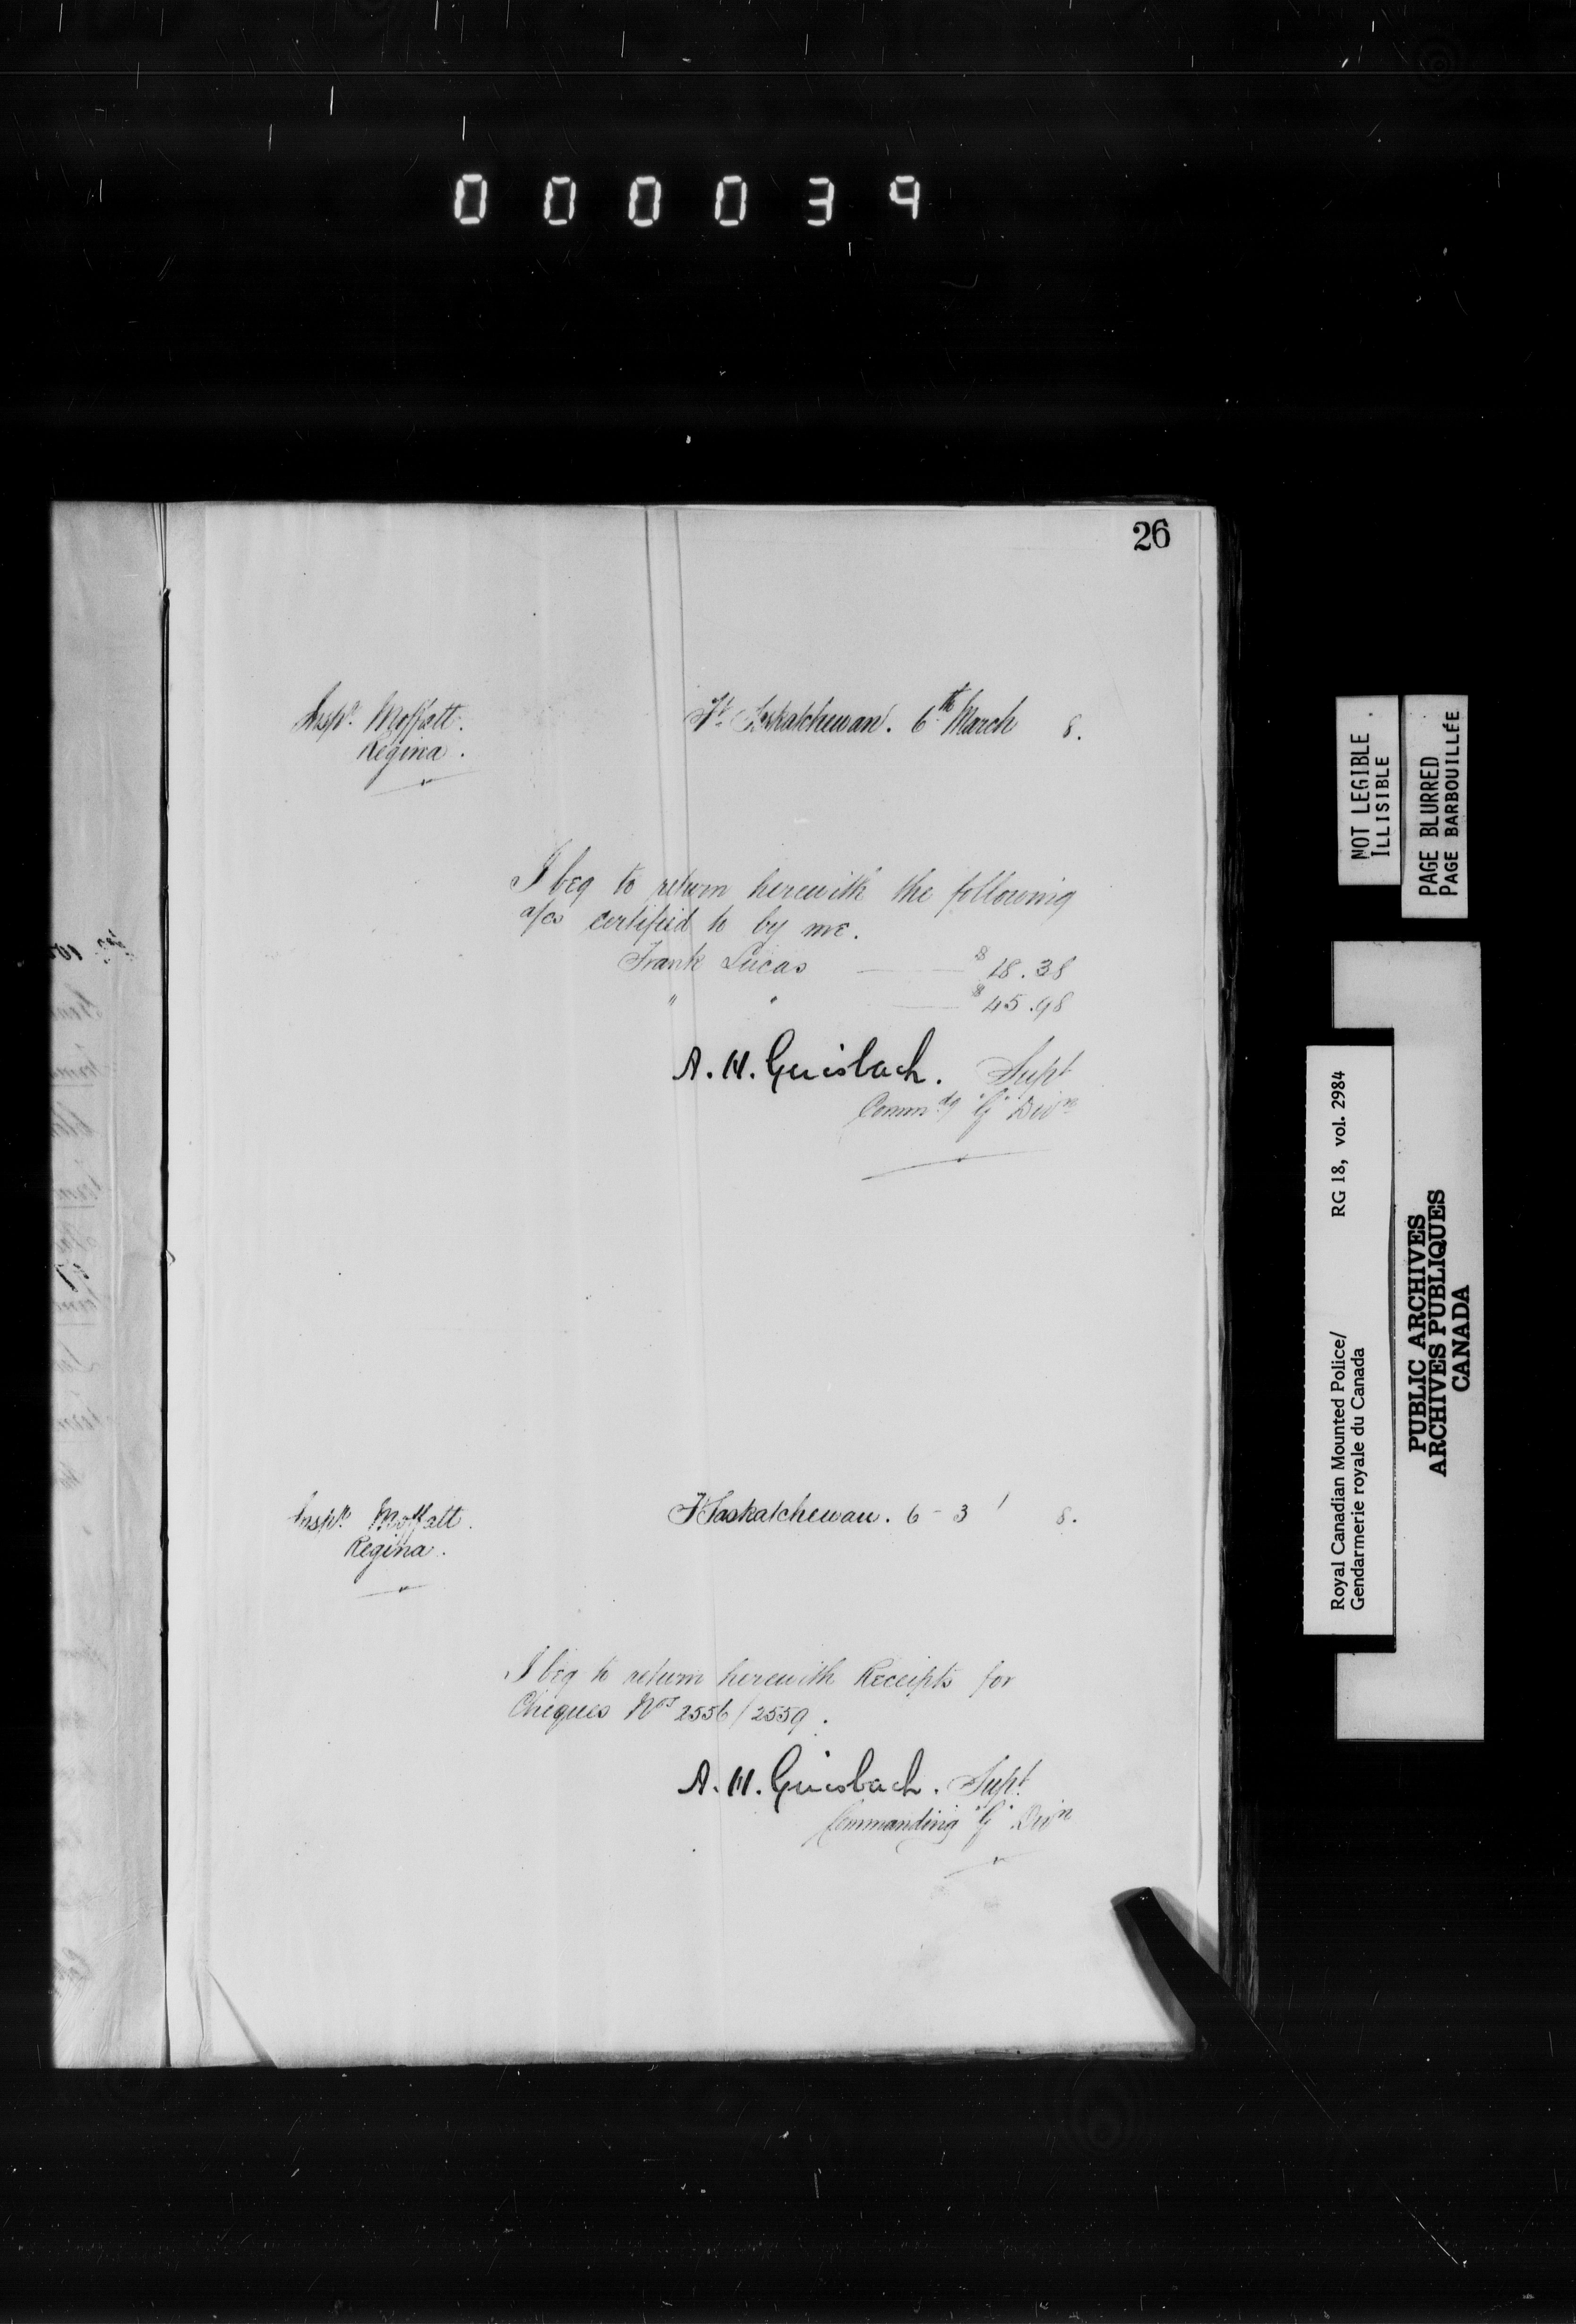 000039
26
Inspr. Moffatt.
Regina.
Ft. Saskatchewan. 6th March 8.
I beg to return herewith the following
a/cs certified to by me.
Frank Lucas $18.38
" " $45.98
A. H. Griesbach. Supt
Commdg "G" Divn
Inspr. Moffatt.
Regina.
Ft Saskatchewan. 6-3 8.
I beg to return herewith Receipts for
Cheques Nos 2556/2559.
A. H. Griesbach. Supt.
Commanding "G" Divn
NOT LEGIBLE
ILLISIBLE
PAGE BLURRED
PAGE BARBOUILLÉE
Royal Canadian Mounted Police/ RG 18, vol. 2984
Gendarmerie royale du Canada
PUBLIC ARCHIVES
ARCHIVES PUBLIQUES
CANADA